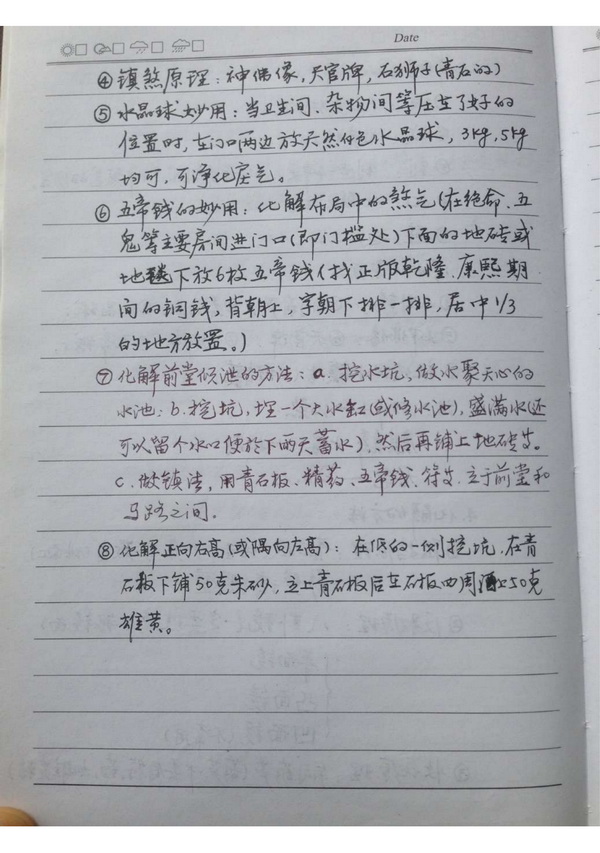 Date
④镇煞原理：神偶像，天官牌，石狮子(青石的)
⑤水晶球妙用：当卫生间、杂物间等压在了好的
位置时，在门口两边放天然白色水晶球，3kg，5kg
均可，可净化戾气。
⑥五帝钱的妙用：化解布局中的煞气(在绝命、五
鬼等主要房间进门口(即门槛处)下面的地砖或
地毯下放6枚五帝钱(找正版乾隆、康熙期
间的铜钱，背朝上，字朝下排一排，居中1/3
的地方放置。)
⑦化解前堂倾泄的方法：a.挖水坑，做水聚天心的
水池：b.挖坑，埋一个大水缸(或修水池)，盛满水(还
可以留个水口便於下雨天蓄水)，然后再铺上地砖。
c.做镇法，用青石板、精药、五帝钱、符，立于前堂和
马路之间。
⑧化解正向右高(或隅向左高)：在低的一侧挖坑，在青
石板下铺50克朱砂，立上青石板后在石板四周洒上50克
雄黄。